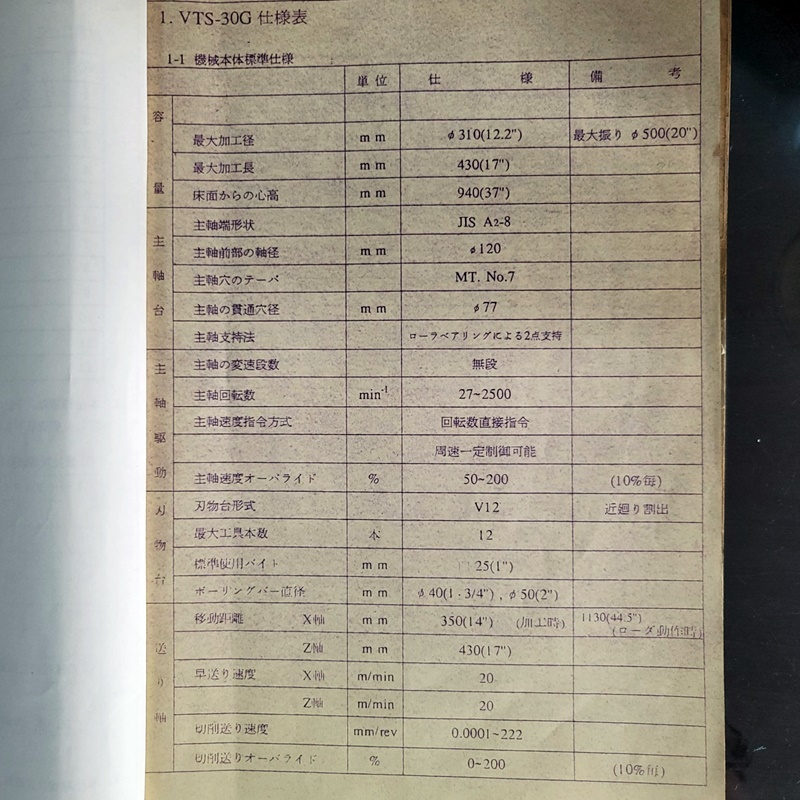 1. VTS-30G 仕様表
1-1 機械本体標準仕様
単位 仕様 備考
容量
最大加工径 mm φ310(12.2") 最大振り φ500(20")
最大加工長 mm 430(17")
床面からの心高 mm 940(37")
主軸台
主軸端形状 JIS A2-8
主軸前部の軸径 mm φ120
主軸穴のテーパ MT. No.7
主軸の貫通穴径 mm φ77
主軸支持法 ローラベアリングによる2点支持
主軸駆動
主軸の変速段数 無段
主軸回転数 min-1 27~2500
主軸速度指令方式 回転数直接指令
周速一定制御可能
主軸速度オーバライド % 50~200 (10%毎)
刃物台
刃物台形式 V12 近廻り割出
最大工具本数 本 12
標準使用バイト mm 25(1")
ボーリングバー直径 mm φ40(1·3/4") , φ50(2")
送り軸
移動距離 X軸 mm 350(14") (加工時) 1130(44.5")
(ローダ動作時)
Z軸 mm 430(17")
早送り速度 X軸 m/min 20
Z軸 m/min 20
切削送り速度 mm/rev 0.0001~222
切削送りオーバライド % 0~200 (10%毎)